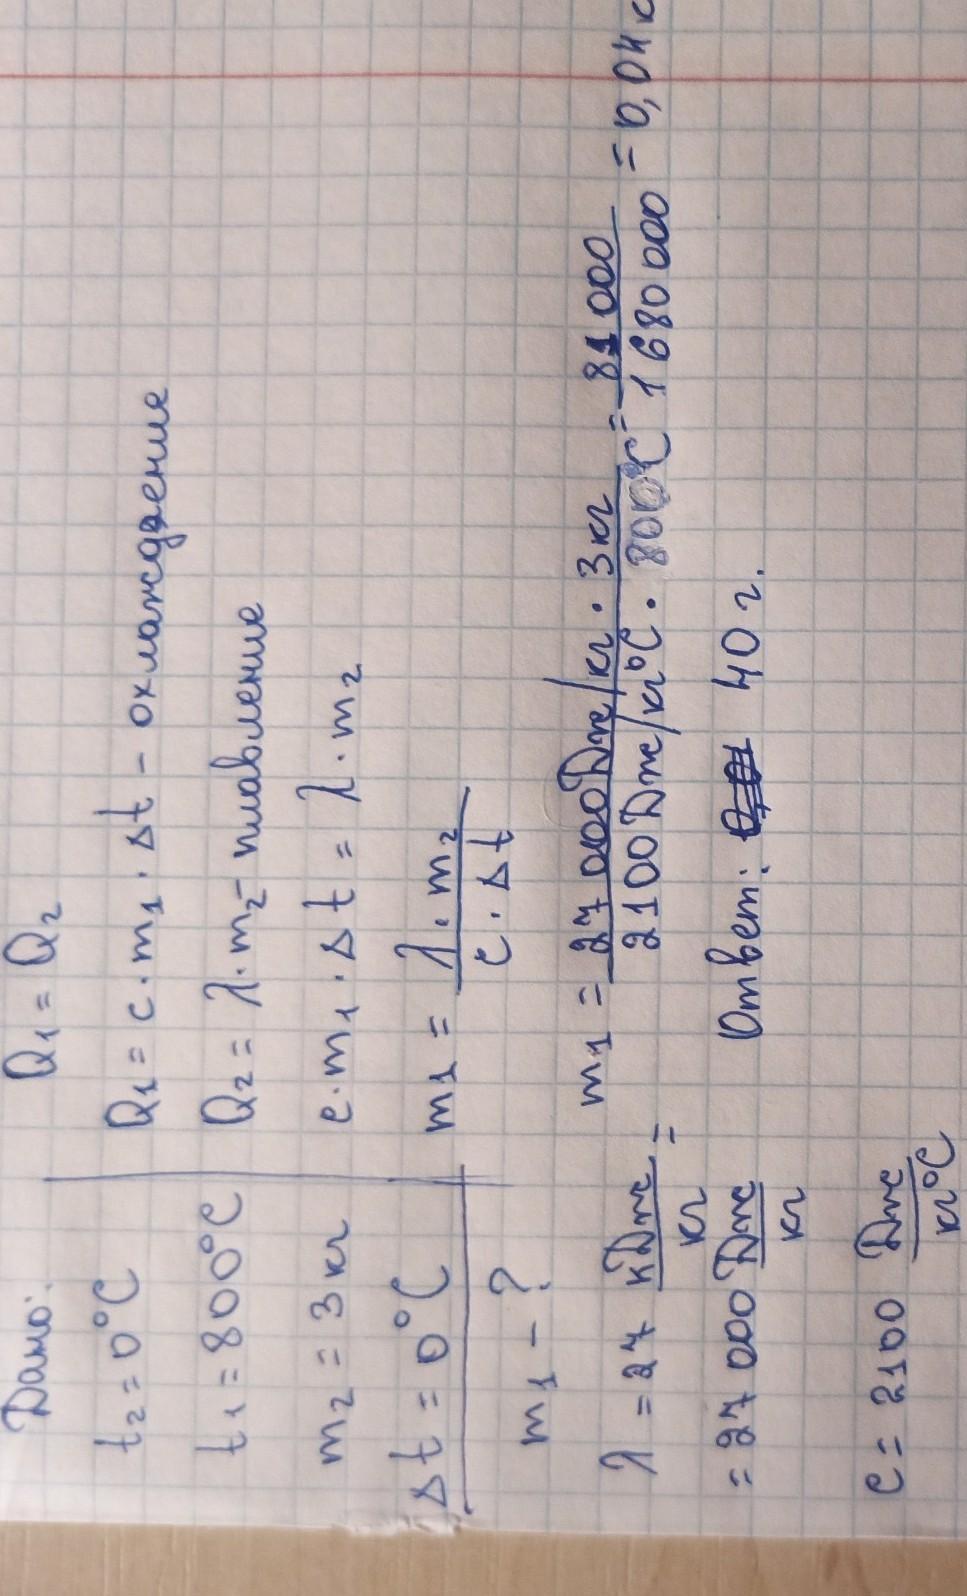 Дано:
t₂ = 0°C
t₁ = 800°C
m₂ = 3 кг
Δt = 0°C
m₁ - ?
λ = 27 кДж/кг =
= 27 000 Дж/кг
c = 2100 Дж/кг°C
Q₁ = Q₂
Q₁ = c · m₁ · Δt - охлаждение
Q₂ = λ · m₂ - плавление
c · m₁ · Δt = λ · m₂
m₁ = λ · m₂ / c · Δt
m₁ = 27 000 Дж/кг · 3 кг / 2100 Дж/кг°C · 800°C = 81 000 / 1 680 000 = 0,04 к
Ответ: 40 г.